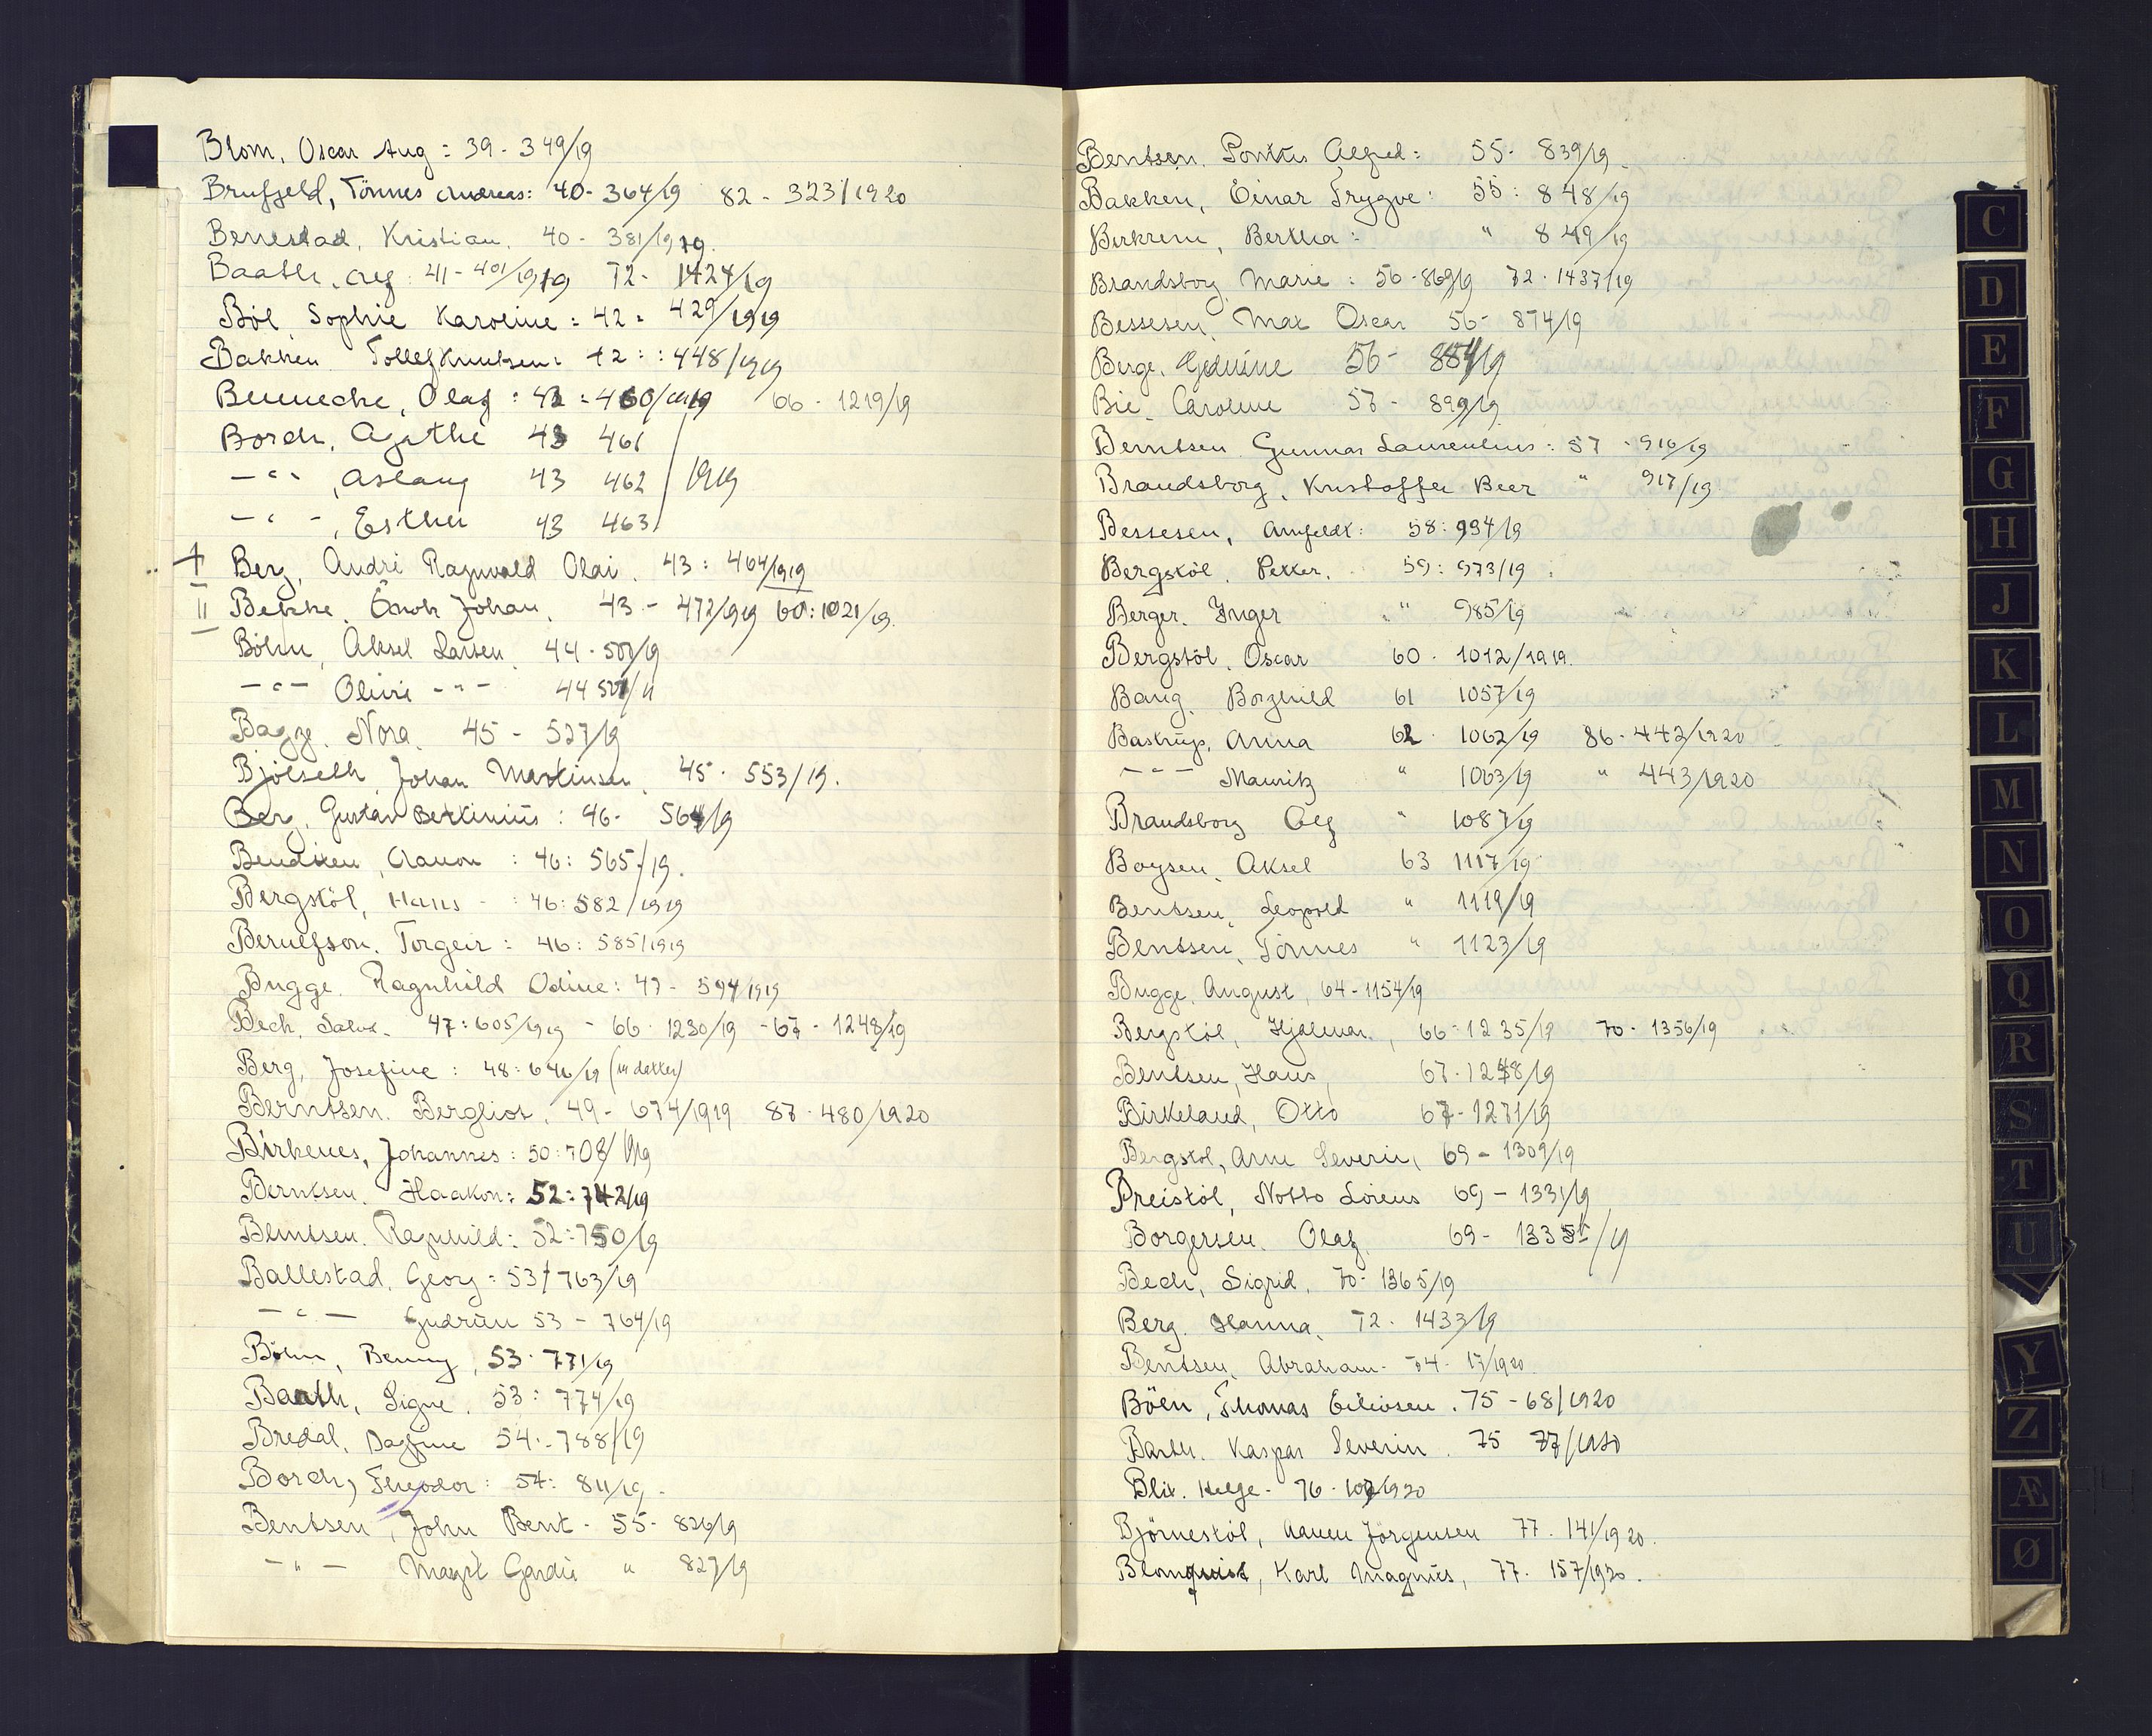 Blom, Oscar Aug: 39 - 349/19
Brufjeld, Tönnes Andreas: 40 - 364/19 82 - 323/1920
Benestad, Kristian, 40 - 381/1919.
Baath, Alf: 41 - 401/1919 72 - 1424/19
Böe, Sophie Karoline: 42: 429/1919
Bakken Tollef Knutsen: 42: 448/1919
Bennecke, Olaf: 43: 460/1919 66 - 1219/19
Borch, Agathe 43 461
- " - , Aslaug 43 462 /1919
- " - , Esther 43 463
+ Berg, André Ragnvald Olai. 43: 464/1919
II Bekke, Enok Johan, 43 - 472/1919 60: 1021/19.
Böhn, Aksel Larsen, 44 - 500/19
- " - Olivie - " - 44 501/"
Bagge, Nora, 45 - 527/19
Bjölseth, Johan Martinsen, 45 - 553/19.
Berg, Gustav Bertinius: 46 - 564/19
Bendixen, Aanon: 46: 565/19.
Bergstöl, Hans - : 46: 582/1919
Berulfson, Torgeir: 46: 585/1919
Bugge, Ragnhild Odine: 47 - 594/1919
Bech, Salve. 47: 605/1919 - 66 - 1230/19 - 67 - 1248/19
Berg, Josefine: 48: 646/19 (m datter)
Berntsen, Bergliot, 49 - 674/1919 87 - 480/1920
Birkenes, Johannes: 50: 708/1919
Berntsen, Haakon: 52: 742/19
Bentsen, Ragnhild: 52: 750/19
Ballestad, Georg: 53/763/19
- " - Gudrun 53 - 764/19
Böhn, Benny, 53 - 771/19
Baath, Signe, 53: 774/19
Bredal, Dagfine 54 - 788/19
Borch, Theodor: 54: 811/19 -
Bentsen, John Bent - 55 - 826/19
- " - Magrit Gardie " 827/19
Bentsen, Pontus Alfred: 55 - 839/19
Bakken, Einar Trygve: 55: 848/19
Birkrem, Bertha: " 849/19
Brandsborg Marie: 56 - 869/19 72 - 1437/19
Bessesen, Max Oscar 56 - 874/19
Berge, 56 - 884/19
Bie, Caroline 57 - 899/19
Berntsen Gunnar Laurentius: 57 - 916/19
Brandsborg, Kristoffer Beer " 917/19
Bessesen, Amfeldt: 58: 934/19
Bergstöl, Petter, 59: 973/19
Berger, Inger " 985/19
Bergstöl, Oscar 60 - 1012/1919.
Bang, Borghild 61 1057/19
Bastrup, Anna 62 - 1062/19 86 - 442/1920
- " - Mauritz " 1063/19 " 443/1920
Brandsborg Alf " 1087/19
Boysen, Aksel 63 1117/19
Bentsen, Leopold " 1119/19
Bentsen, Tönnes " 1123/19
Bugge, August, 64 - 1154/19
Bergstöl, Hjalmar, 66 - 1235/19 70 - 1356/19
Bentsen, Hans, 67 - 1258/19
Birkeland, Otto 67 - 1271/19
Bergstöl, Arne Severin, 69 - 1309/19
Breistöl, Notto Lorens 69 - 1331/19
Borgersen, Olaf, 69 - 1335/19
Bech, Sigrid, 70 - 1365/19
Berg, Hanna, 72 - 1433/19
Bentsen, Abraham - 74 - 17/1920
Böen, Thomas Eilivsen. 75 - 68/1920
Kaspar Severin. 75 77/1920
Blix. Helge - 76 - 107/1920
Björnestöl, Aanen Jörgensen 77 - 141/1920.
Blomquist, Karl Magnus, 77 - 157/1920.
C
D
E
F
G
H
J
K
L
M
N
O
Q
R
S
T
U
Y
Z
Æ
Ø